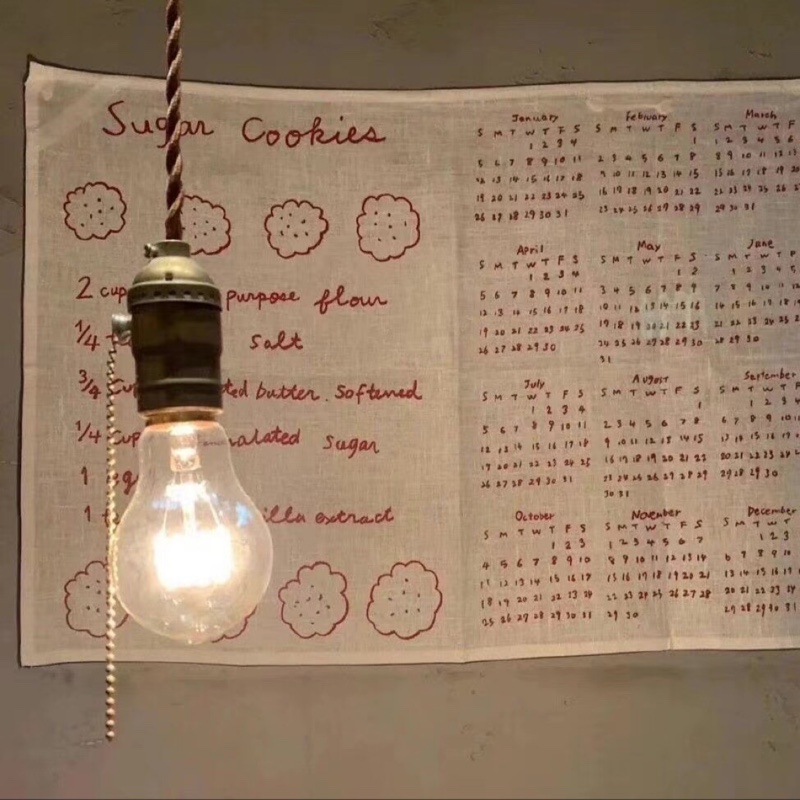 Sugar Cookies
2 cup purpose flour
1/4 salt
3/4 cup butter. Softened
1/4 cup Sugar
1
1 extract
January
S M T W T F S
1 2 3 4
5 6 7 8 9 10 11
12 13 14 15 16 17 18
19 20 21 22 23 24 25
26 27 28 29 30 31
Febiuary
S M T W T F S
1
2 3 4 5 6 7 8
9 10 11 12 13 14 15
16 17 18 19 20 21 22
23 24 25 26 27 28 29
March
S M T W T F
1 2 3 4 5 6
8 9 10 11 12 13
15 16 17 18 19 20
22 23 24 25 26 27
29 30 31
April
S M T W T F S
1 2 3 4
5 6 7 8 9 10 11
12 13 14 15 16 17 18
19 20 21 22 23 24 25
26 27 28 29 30
May
S M T W T F S
1 2
3 4 5 6 7 8 9
10 11 12 13 14 15 16
17 18 19 20 21 22 23
24 25 26 27 28 29 30
31
June
S M T W T F
1 2 3 4 5
7 8 9 10 11 12
14 15 16 17 18 19
21 22 23 24 25 26
28 29 30
July
S M T W T F S
1 2 3 4
5 6 7 8 9 10 11
12 13 14 15 16 17 18
19 20 21 22 23 24 25
26 27 28 29 30 31
August
S M T W T F S
1
2 3 4 5 6 7 8
9 10 11 12 13 14 15
16 17 18 19 20 21 22
23 24 25 26 27 28 29
30 31
September
S M T W T F
1 2 3 4
6 7 8 9 10 11
13 14 15 16 17
20 21 22 23 24 25
27 28 29 30
October
S M T W T F S
1 2 3
4 5 6 7 8 9 10
11 12 13 14 15 16 17
18 19 20 21 22 23 24
25 26 27 28 29 30 31
November
S M T W T F S
1 2 3 4 5 6 7
8 9 10 11 12 13 14
15 16 17 18 19 20 21
22 23 24 25 26 27 28
29 30
December
S M T W T
1 2 3
6 7 8 9 10
13 14 15 16 17
20 21 22 23 24
27 28 29 30 31